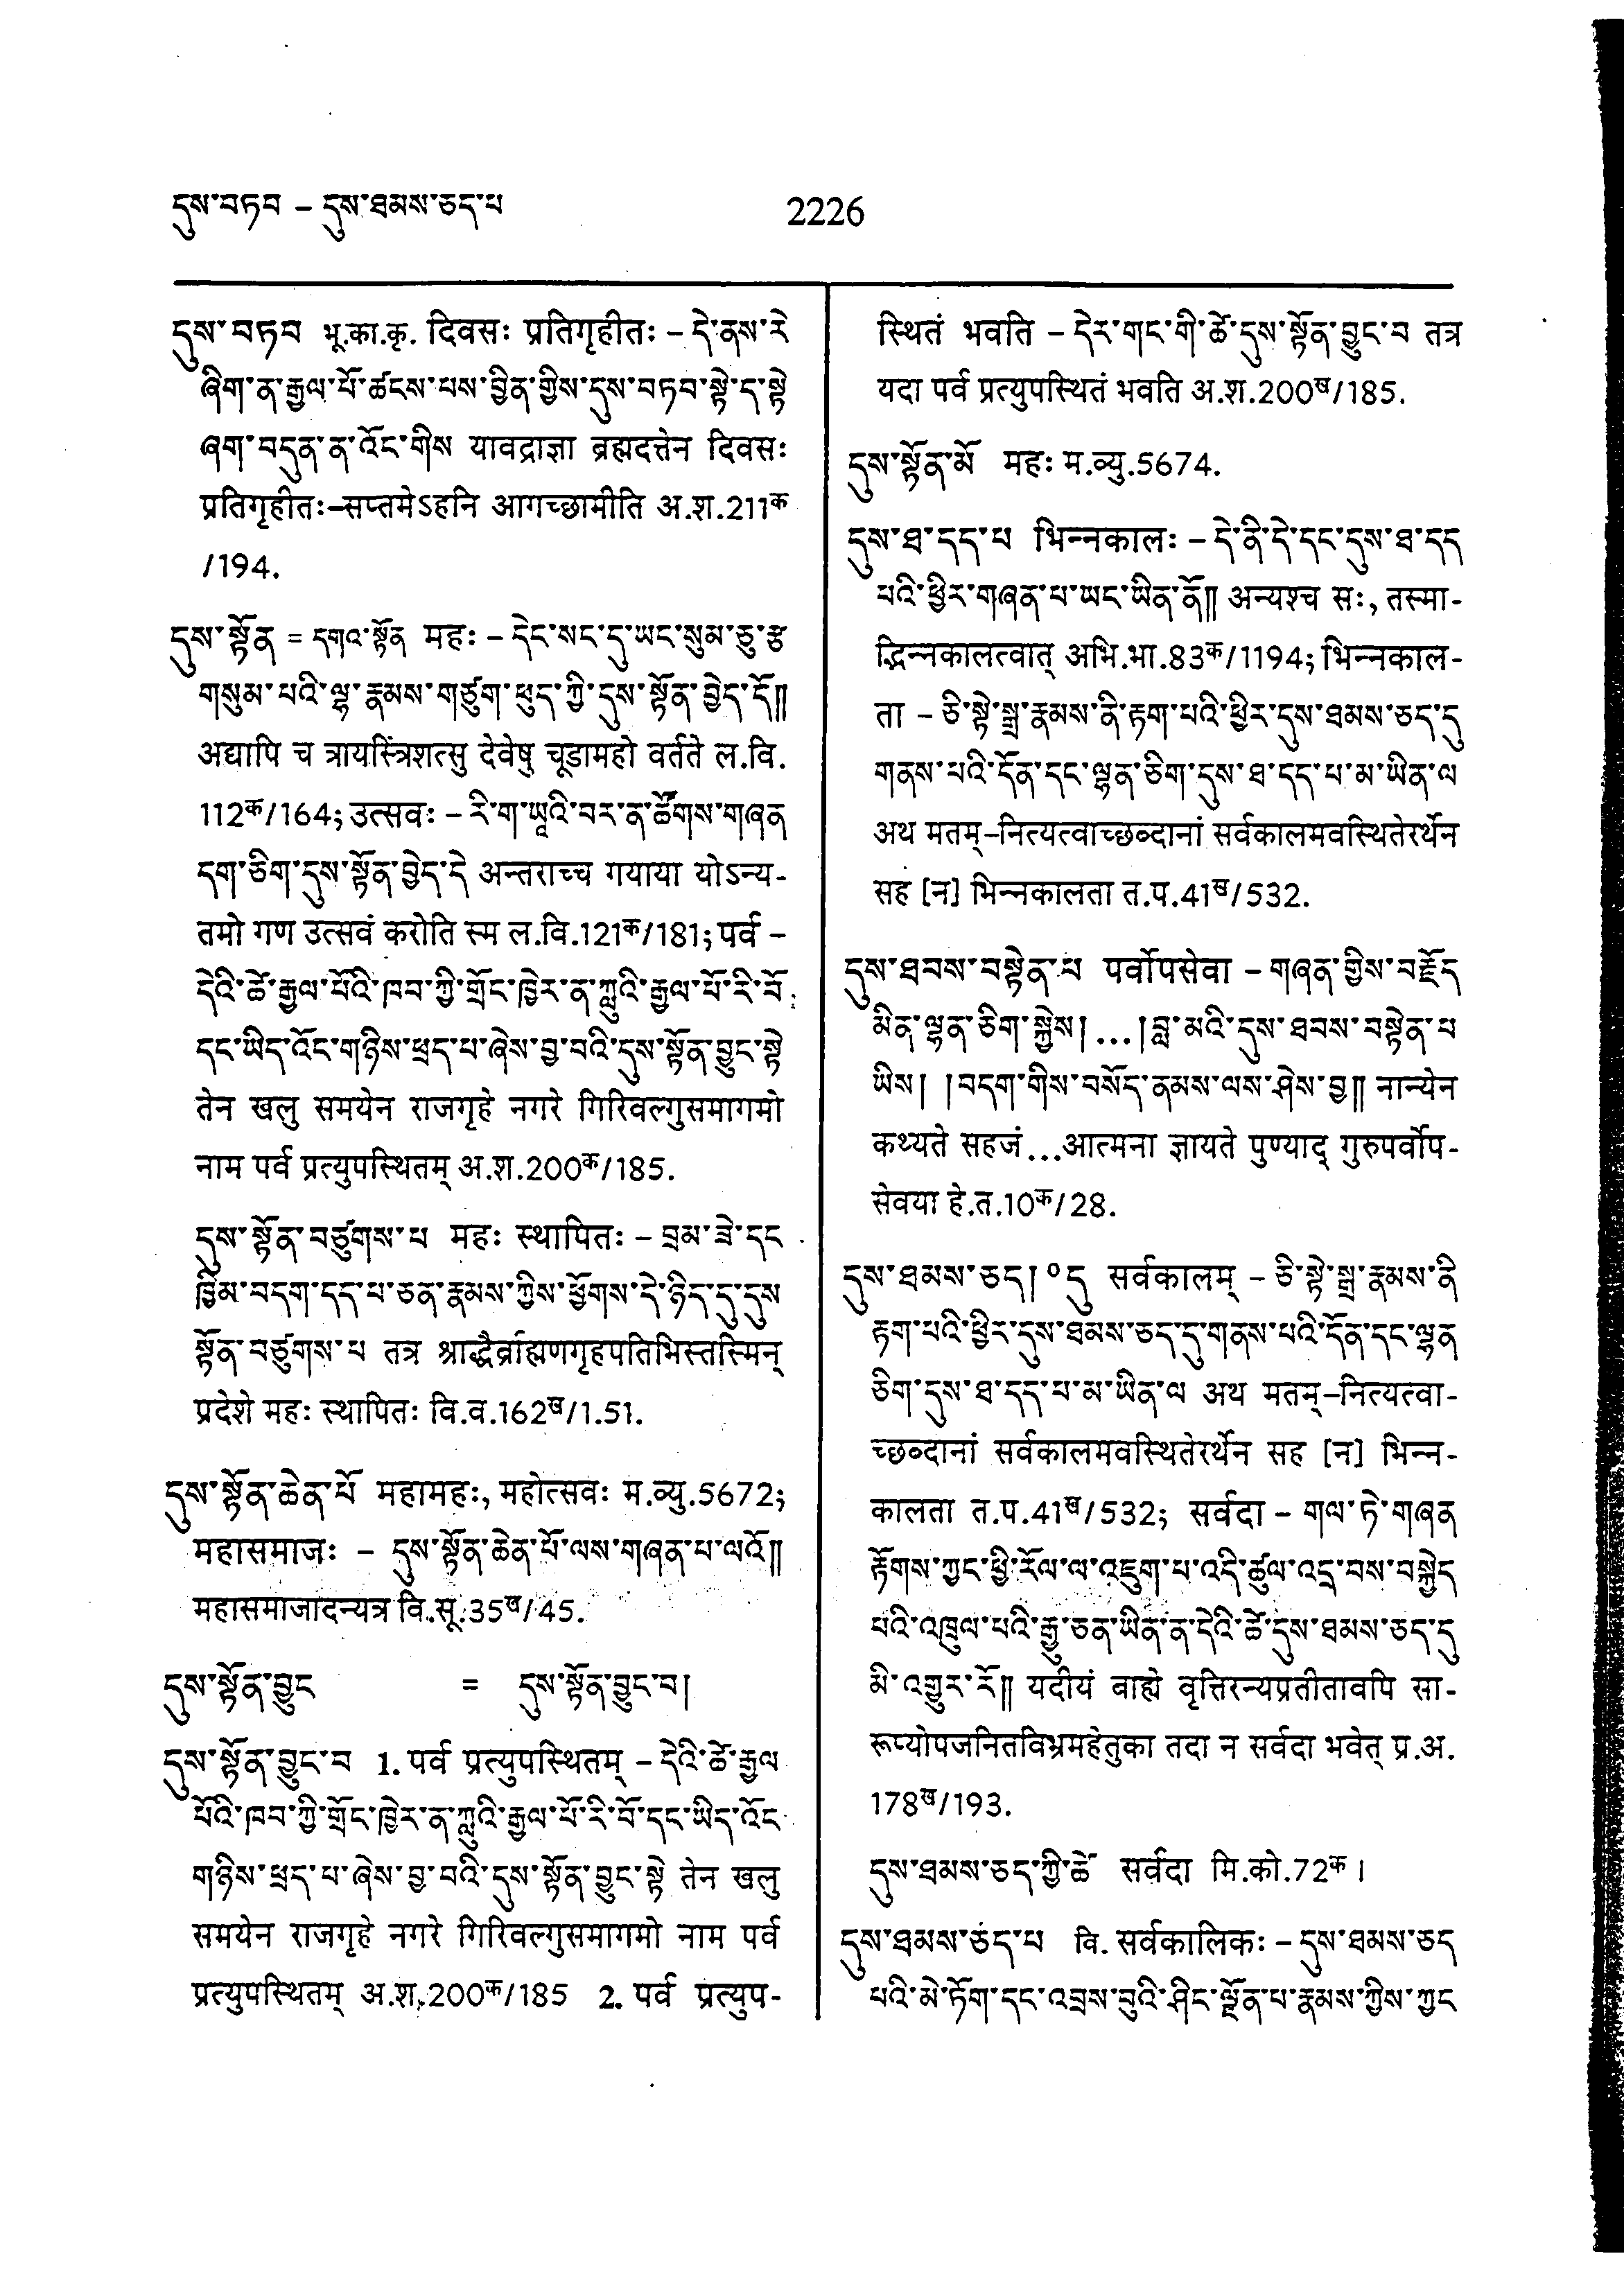 དུས་བཏབ – དུས་ཐམས་ཅད་པ
2226
དུས་བཏབ भू.का.कृ. दिवसः प्रतिगृहीतः – དེ་ནས་རེ
ཞིག་ན་རྒྱལ་པོ་ཚངས་པས་བྱིན་གྱིས་དུས་བཏབ་སྟེ་ད་སྟེ
ཞག་བདུན་ན་འོང་གིས यावद्राज्ञा ब्रह्मदत्तेन दिवसः
प्रतिगृहीतः–सप्तमेऽहनि आगच्छामीति अ.श.211क
/194.
དུས་སྟོན = དགའ་སྟོན महः – དེང་སང་དུ་ཡང་སུམ་ཅུ་རྩ
གསུམ་པའི་ལྷ་རྣམས་གཙུག་ཕུད་ཀྱི་དུས་སྟོན་བྱེད་དོ༎
अद्यापि च त्रायस्त्रिंशत्सु देवेषु चूडामहो वर्तते ल.वि.
112क/164; उत्सवः – རི་ག་ཡཱའི་བར་ན་ཚོགས་གཞན
དག་ཅིག་དུས་སྟོན་བྱེད་དེ अन्तराच्च गयाया योऽन्य-
तमो गण उत्सवं करोति स्म ल.वि.121क/181; पर्व –
དེའི་ཚེ་རྒྱལ་པོའི་ཁབ་ཀྱི་གྲོང་ཁྱེར་ན་ཀླུའི་རྒྱལ་པོ་རི་བོ
དང་ཡིད་འོང་གཉིས་ཕྲད་པ་ཞེས་བྱ་བའི་དུས་སྟོན་བྱུང་སྟེ
तेन खलु समयेन राजगृहे नगरे गिरिवल्गुसमागमो
नाम पर्व प्रत्युपस्थितम् अ.श.200क/185.
དུས་སྟོན་བཙུགས་པ महः स्थापितः – བྲམ་ཟེ་དང
ཁྱིམ་བདག་དད་པ་ཅན་རྣམས་ཀྱིས་ཕྱོགས་དེ་ཉིད་དུ་དུས
སྟོན་བཙུགས་པ तत्र श्राद्धैर्ब्राह्मणगृहपतिभिस्तस्मिन्
प्रदेशे महः स्थापितः वि.व.162ख/1.51.
དུས་སྟོན་ཆེན་པོ महामहः, महोत्सवः म.व्यु.5672;
महासमाजः – དུས་སྟོན་ཆེན་པོ་ལས་གཞན་པ་ལའོ༎
महासमाजादन्यत्र वि.सू.35ख/45.
དུས་སྟོན་བྱུང = དུས་སྟོན་བྱུང་བ།
དུས་སྟོན་བྱུང་བ 1. पर्व प्रत्युपस्थितम् – དེའི་ཚེ་རྒྱལ
པོའི་ཁབ་ཀྱི་གྲོང་ཁྱེར་ན་ཀླུའི་རྒྱལ་པོ་རི་བོ་དང་ཡིད་འོང
གཉིས་ཕྲད་པ་ཞེས་བྱ་བའི་དུས་སྟོན་བྱུང་སྟེ तेन खलु
समयेन राजगृहे नगरे गिरिवल्गुसमागमो नाम पर्व
प्रत्युपस्थितम् अ.श.200क/185 2. पर्व प्रत्युप-
स्थितं भवति – དེར་གང་གི་ཚེ་དུས་སྟོན་བྱུང་བ तत्र
यदा पर्व प्रत्युपस्थितं भवति अ.श.200ख/185.
དུས་སྟོན་མོ महः म.व्यु.5674.
དུས་ཐ་དད་པ भिन्नकालः – དེ་ནི་དེ་དང་དུས་ཐ་དད
པའི་ཕྱིར་གཞན་པ་ཡང་ཡིན་ནོ༎ अन्यश्च सः, तस्मा-
द्भिन्नकालत्वात् अभि.भा.83क/1194; भिन्नकाल-
ता – ཅི་སྟེ་སྒྲ་རྣམས་ནི་རྟག་པའི་ཕྱིར་དུས་ཐམས་ཅད་དུ
གནས་པའི་དོན་དང་ལྷན་ཅིག་དུས་ཐ་དད་པ་མ་ཡིན་ལ
अथ मतम्–नित्यत्वाच्छब्दानां सर्वकालमवस्थितेरर्थेन
सह [न] भिन्नकालता त.प.41ख/532.
དུས་ཐབས་བསྟེན་པ पर्वोपसेवा – གཞན་གྱིས་བརྗོད
མིན་ལྷན་ཅིག་སྐྱེས། ...།བླ་མའི་དུས་ཐབས་བསྟེན་པ
ཡིས། །བདག་གིས་བསོད་ནམས་ལས་ཤེས་བྱ༎ नान्येन
कथ्यते सहजं...आत्मना ज्ञायते पुण्याद् गुरुपर्वोप-
सेवया हे.त.10क/28.
དུས་ཐམས་ཅད། °དུ सर्वकालम् – ཅི་སྟེ་སྒྲ་རྣམས་ནི
རྟག་པའི་ཕྱིར་དུས་ཐམས་ཅད་དུ་གནས་པའི་དོན་དང་ལྷན
ཅིག་དུས་ཐ་དད་པ་མ་ཡིན་ལ अथ मतम्–नित्यत्वा-
च्छब्दानां सर्वकालमवस्थितेरर्थेन सह [न] भिन्न-
कालता त.प.41ख/532; सर्वदा – གལ་ཏེ་གཞན
རྟོགས་ཀྱང་ཕྱི་རོལ་ལ་འཇུག་པ་འདི་ཚུལ་འདྲ་བས་བསྐྱེད
པའི་འཁྲུལ་པའི་རྒྱུ་ཅན་ཡིན་ན་དེའི་ཚེ་དུས་ཐམས་ཅད་དུ
མི་འགྱུར་རོ༎ यदीयं बाह्ये वृत्तिरन्यप्रतीतावपि सा-
रूप्योपजनितविभ्रमहेतुका तदा न सर्वदा भवेत् प्र.अ.
178ख/193.
དུས་ཐམས་ཅད་ཀྱི་ཚེ सर्वदा मि.को.72क।
དུས་ཐམས་ཅད་པ वि. सर्वकालिकः – དུས་ཐམས་ཅད
པའི་མེ་ཏོག་དང་འབྲས་བུའི་ཤིང་ལྗོན་པ་རྣམས་ཀྱིས་ཀྱང